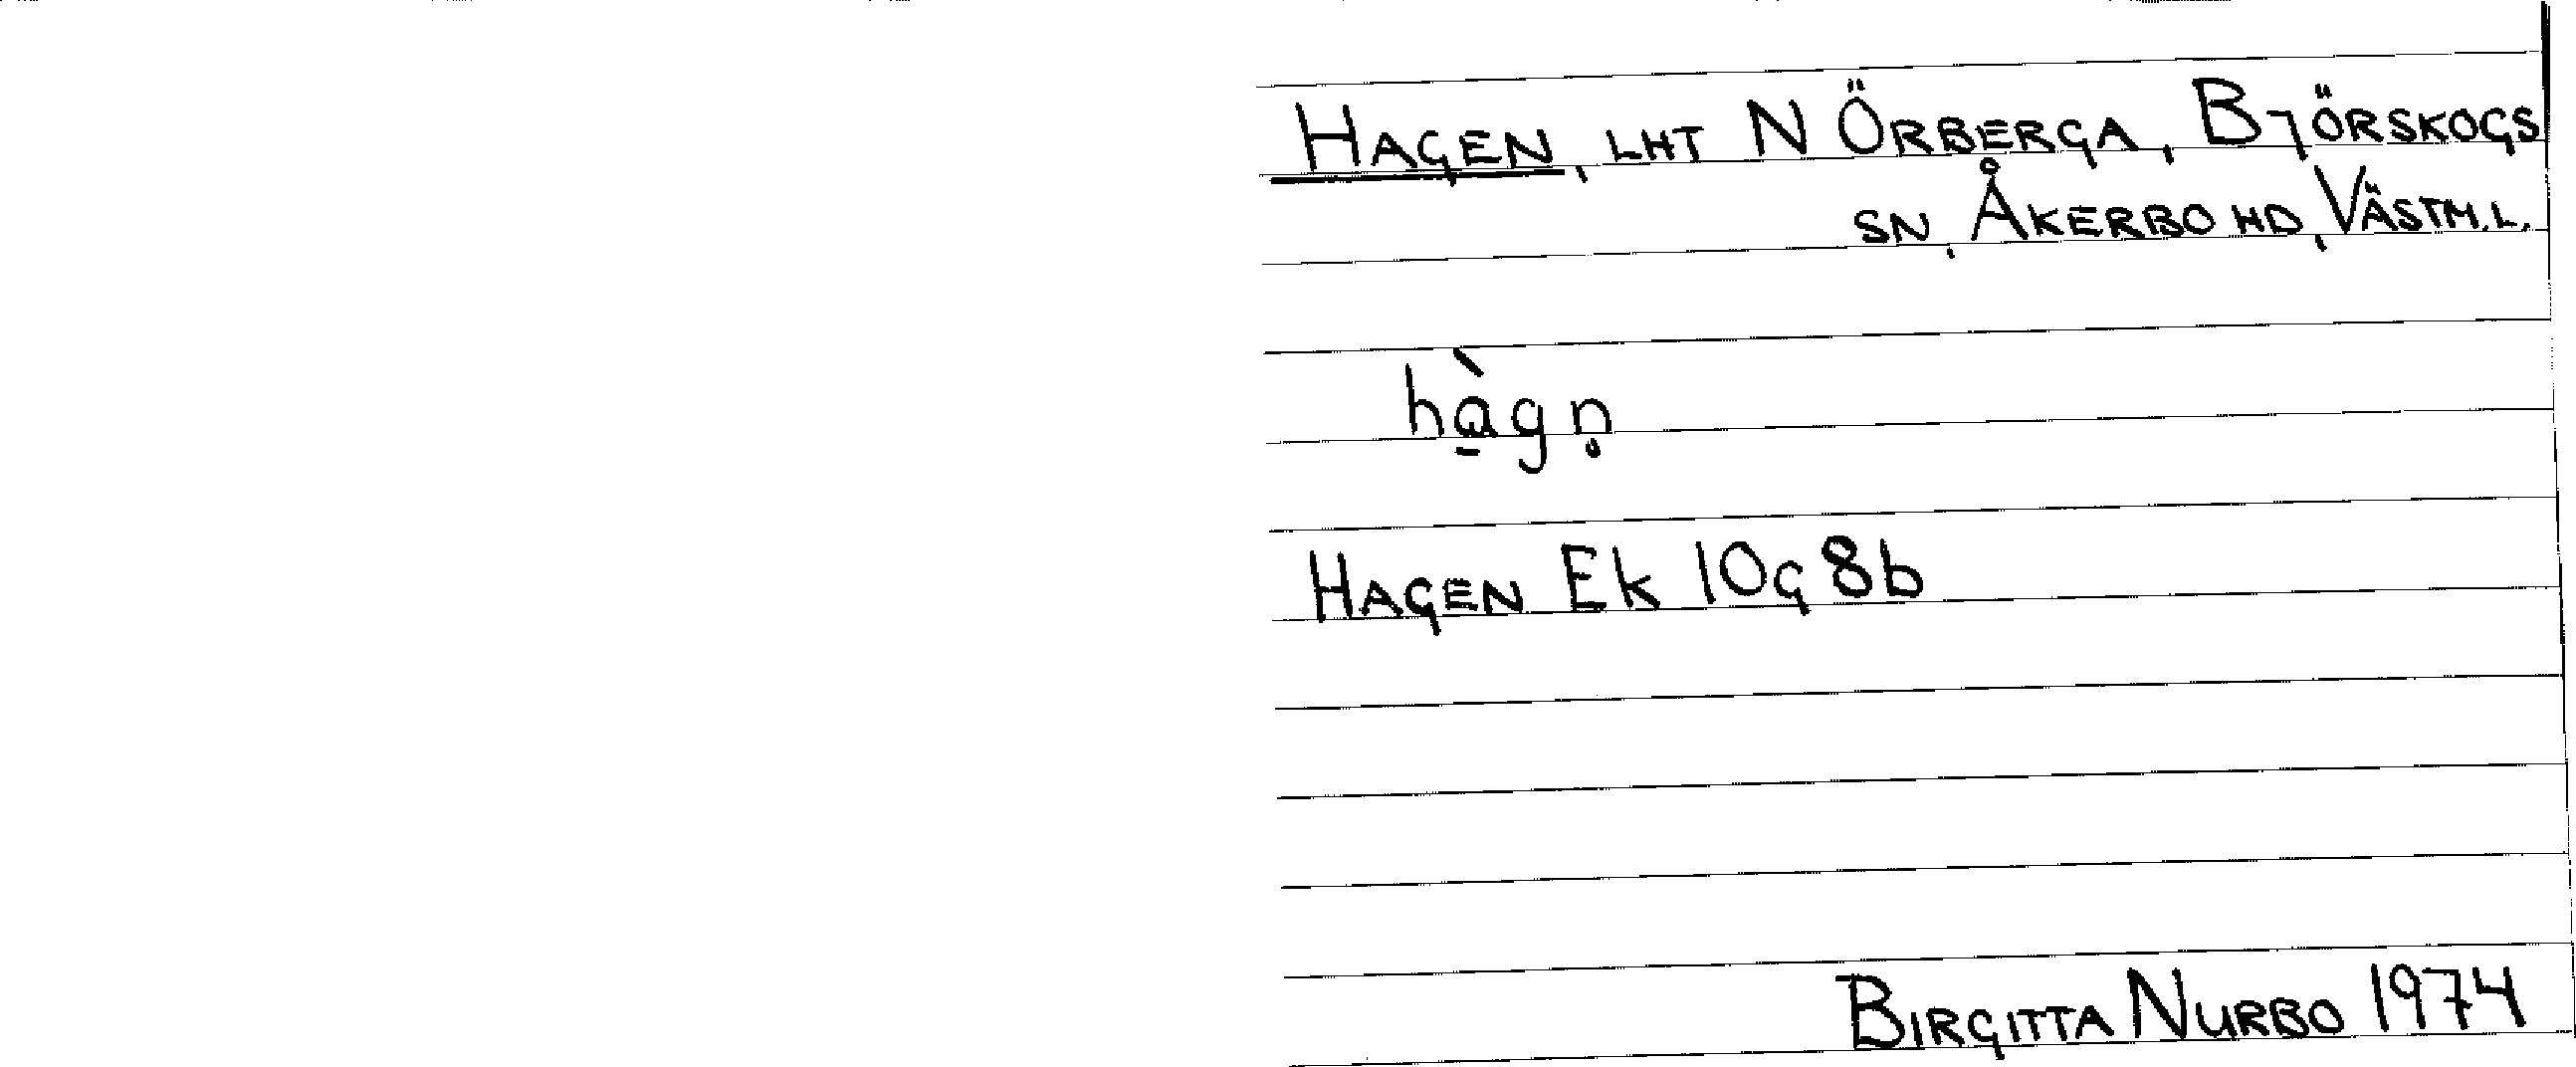 HAGEN, LHT N ÖRBERGA, BJÖRSKOGS
SN, ÅKERBO HD, VÄSTM.L.
hà̱gn̥
HAGEN Ek 10g 8b
BIRGITTA NURBO 1974